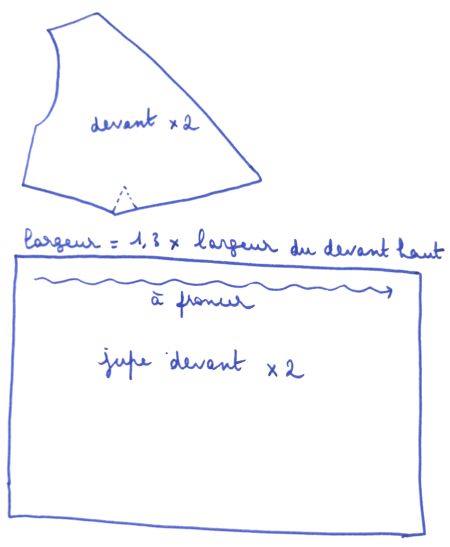 devant x2
largeur = 1,3 x largeur du devant haut
à froncer
jupe devant x2